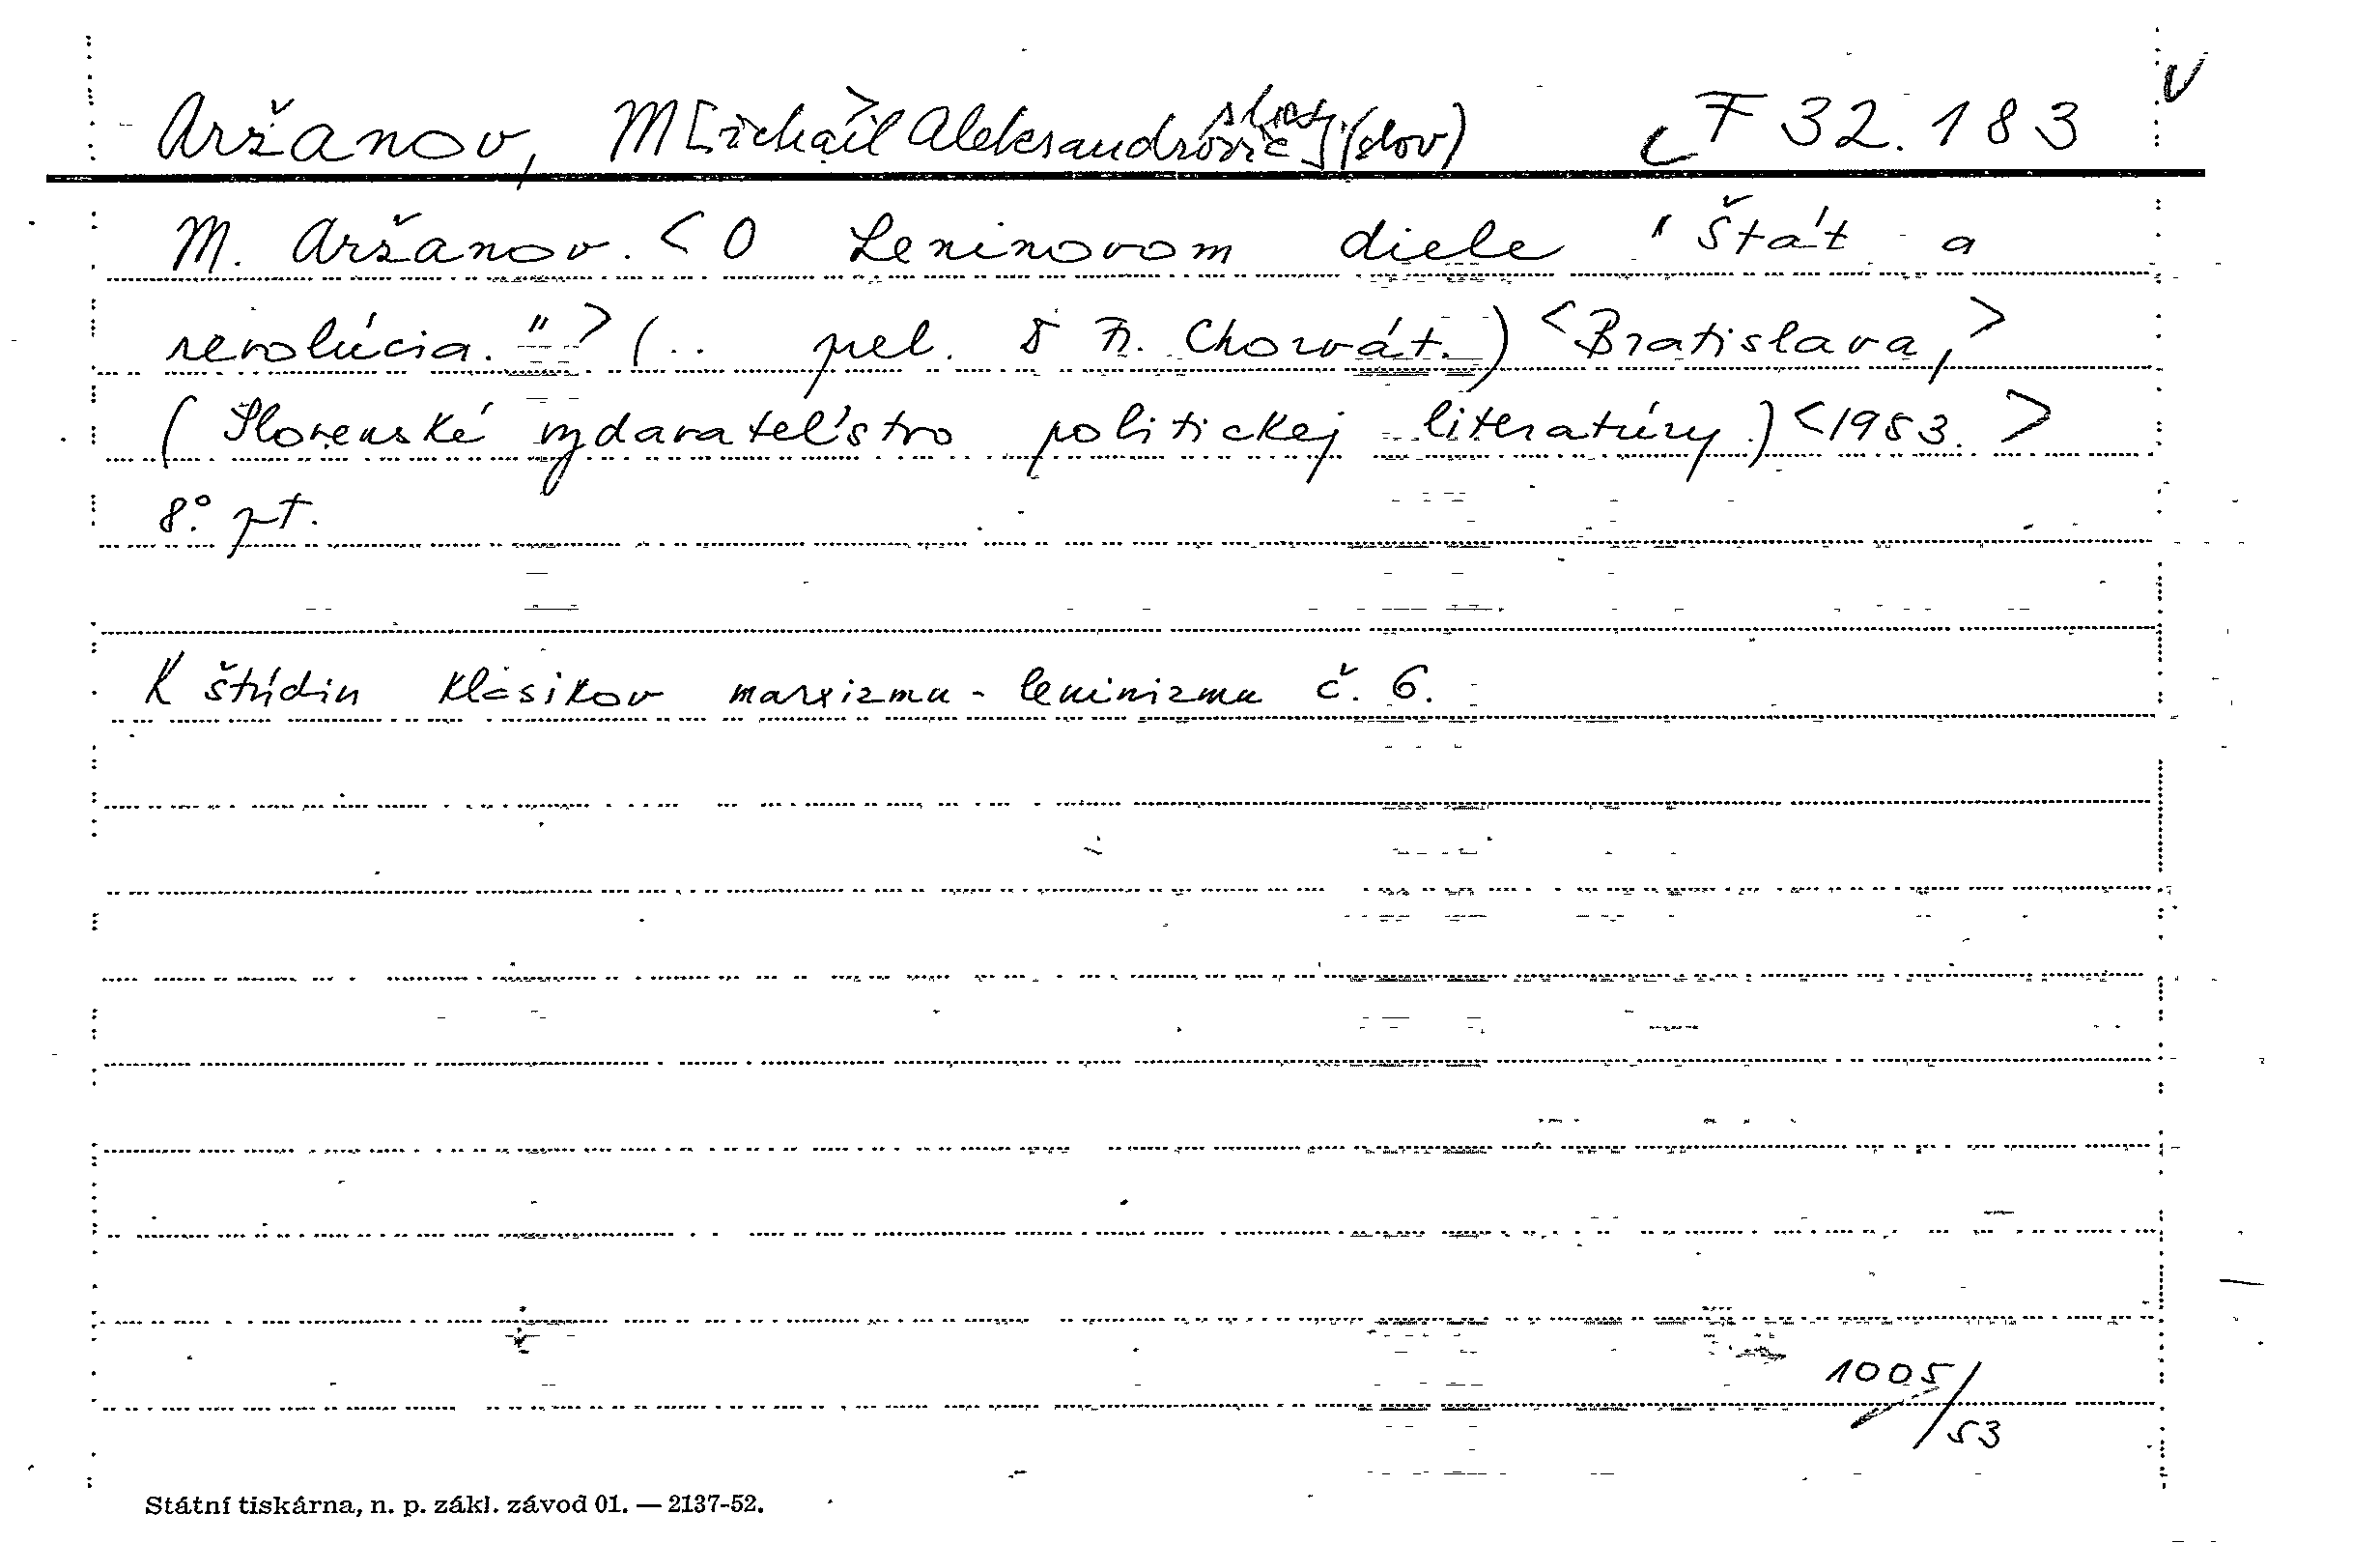 Aržanov, M[ichail Aleksandrovič] (slov) F 32.183
M. Aržanov. <O Leninovom diele "Štát a
revolúcia."> (.. prel. Fr. Chorvát.) <Bratislava,>
(Slovenské vydavateľstvo politickej literatúry.) <1953.>
8°.
K štúdiu klasikov marxizmu-leninizmu č. 6.
1005/53
Státní tiskárna, n. p. zákl. závod 01. — 2137-52.